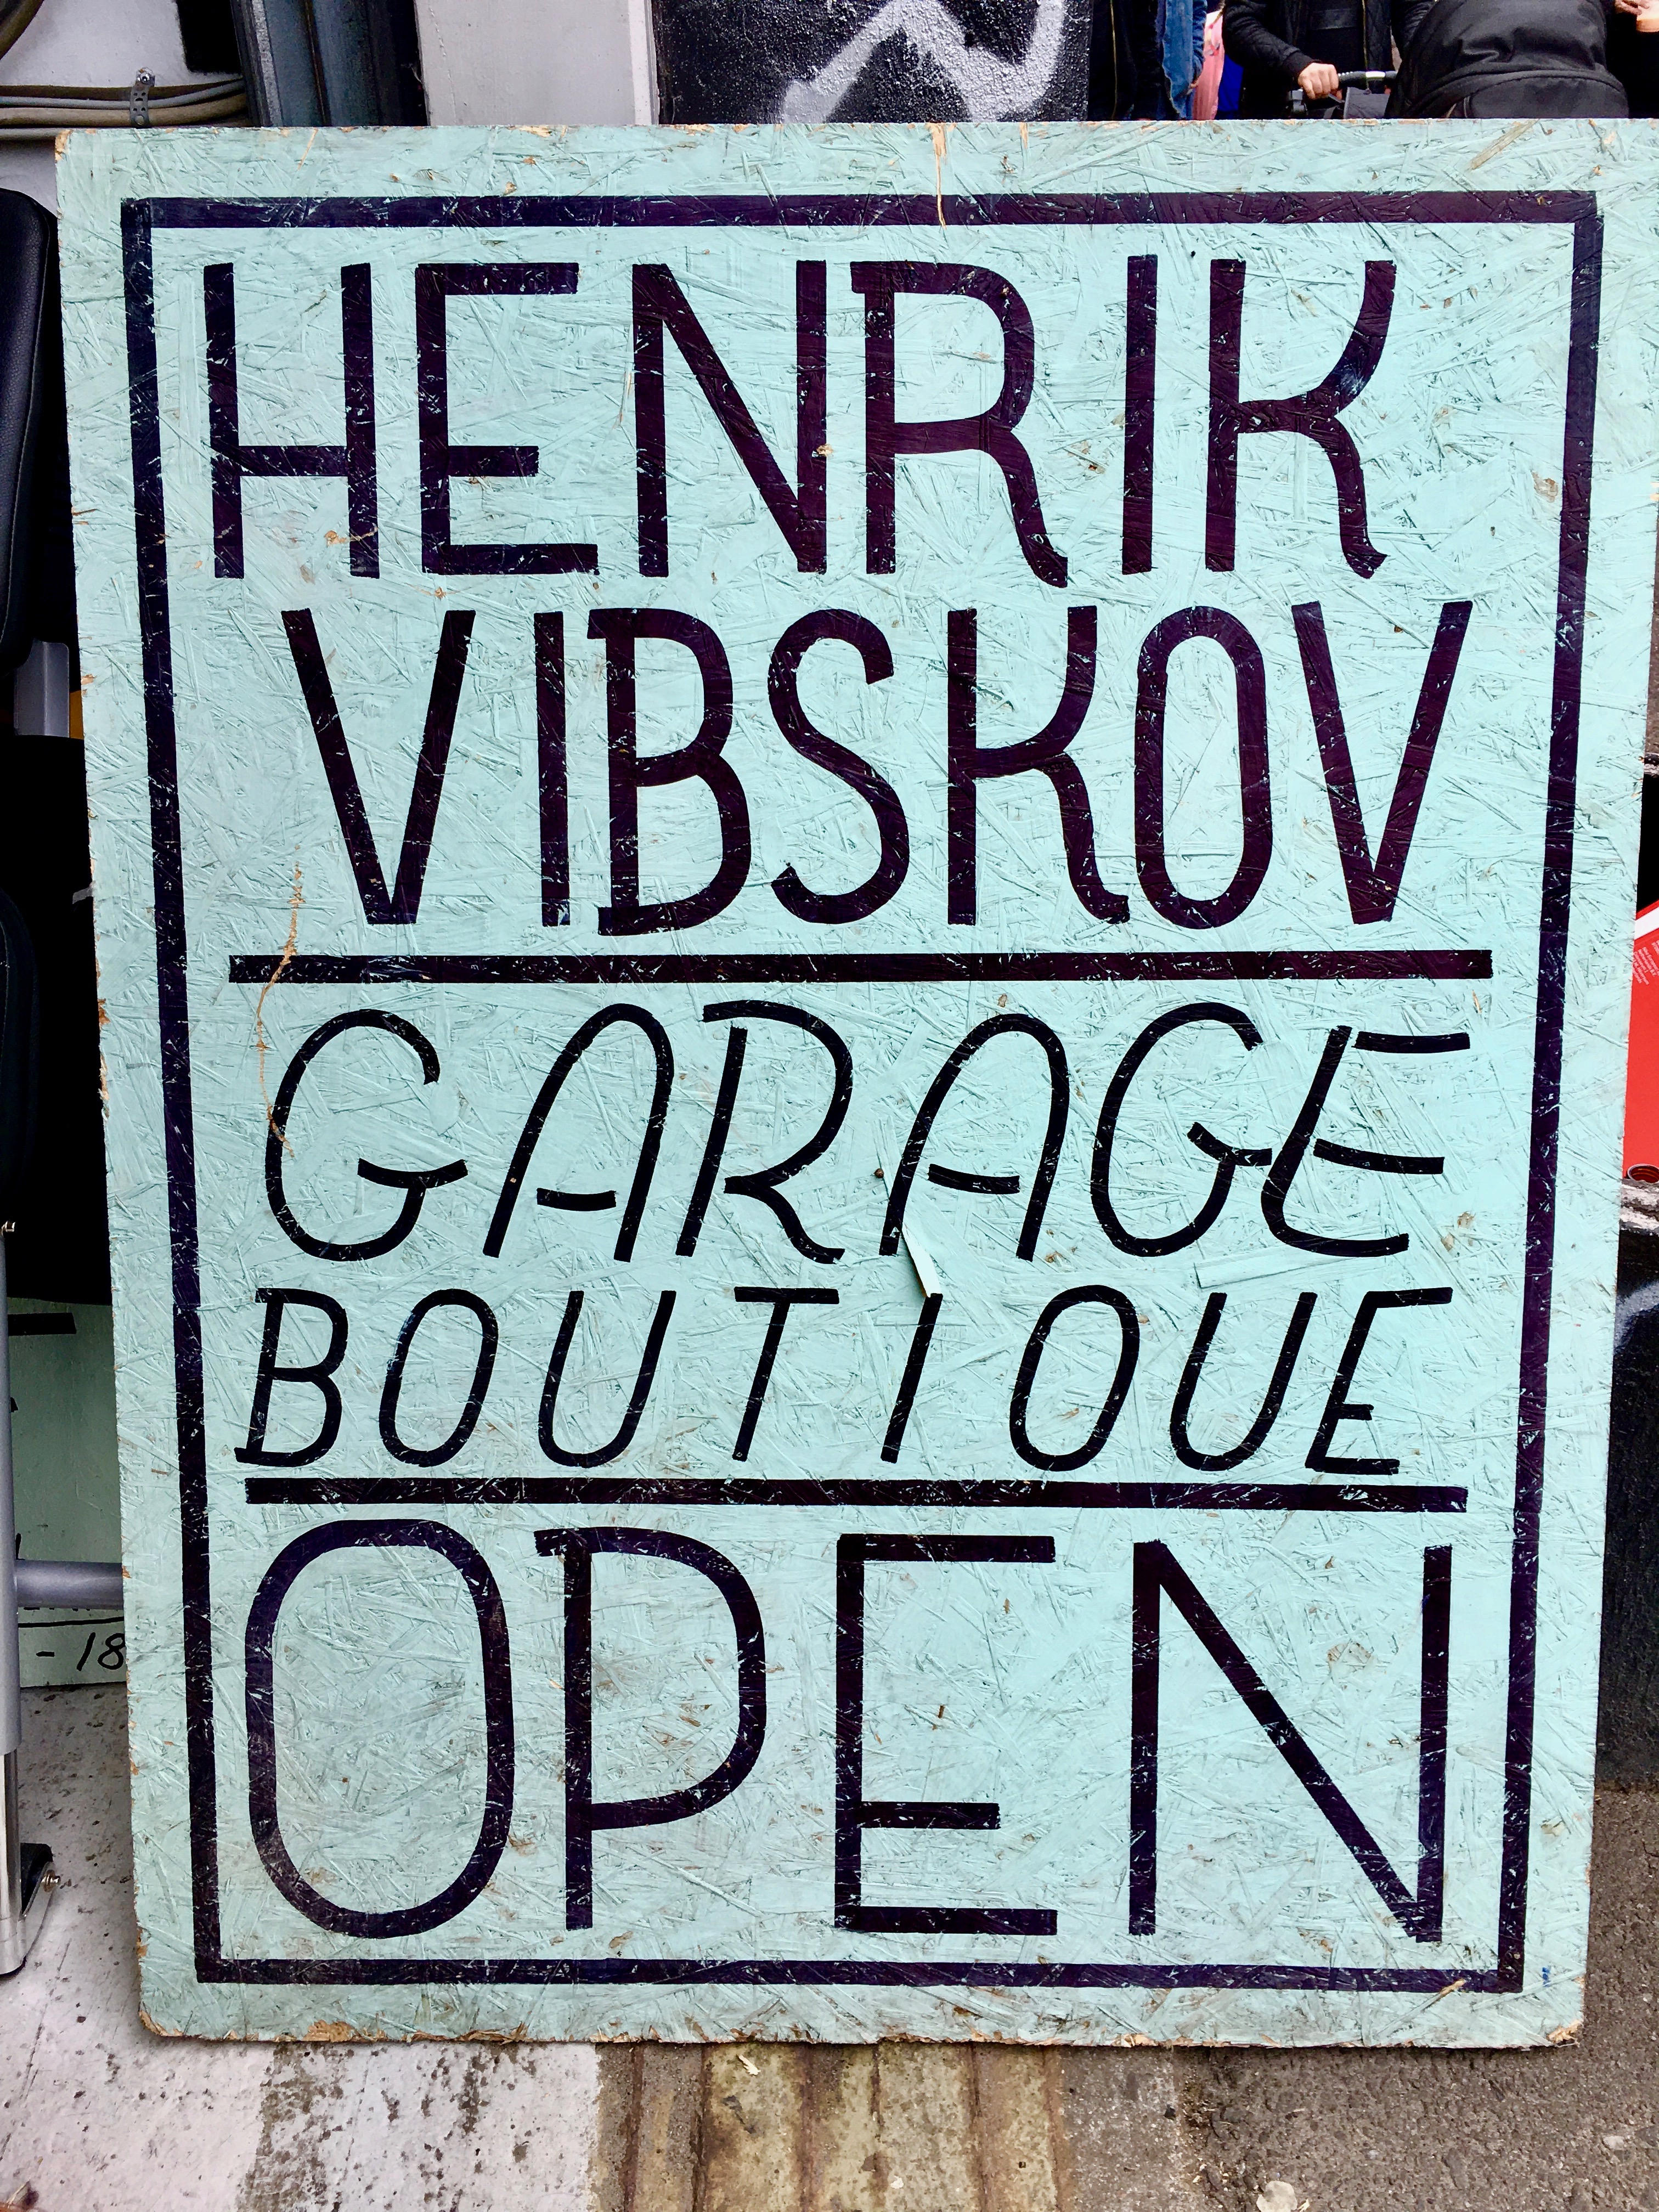 HENRIK
VIBSKOV
GARAGE
BOUTIQUE
OPEN
- 18